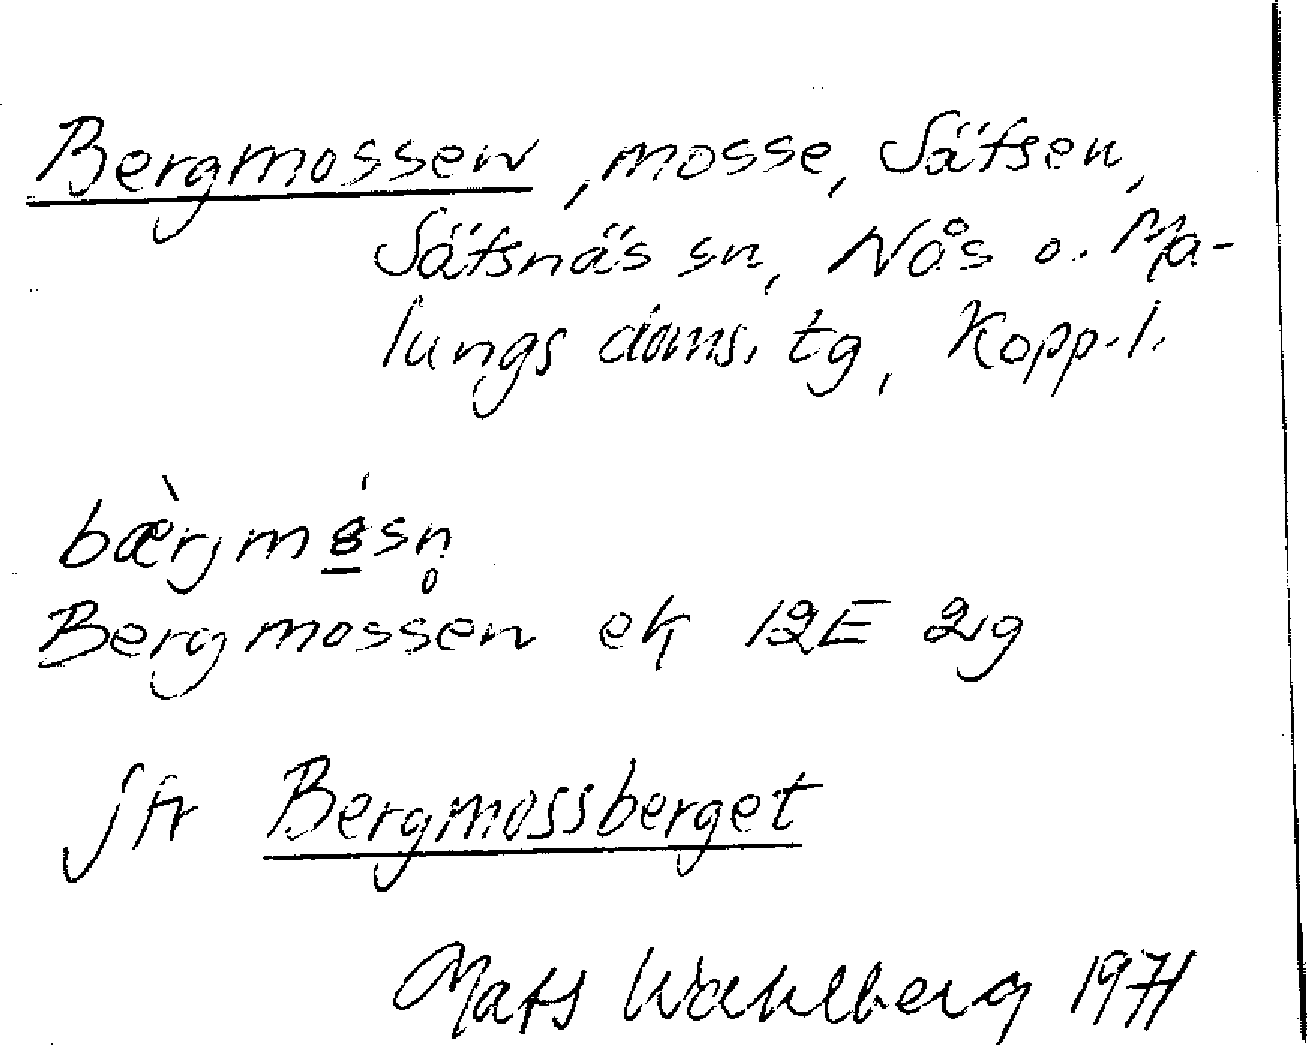 Bergmossen, mosse, Sätsen,
Sätsnäs sn, Nås o. Ma-
lungs doms. tg, Kopp. l.
Bergmossen ek 12E 2g
jfr Bergmossberget
Mats Wahlberg 1971